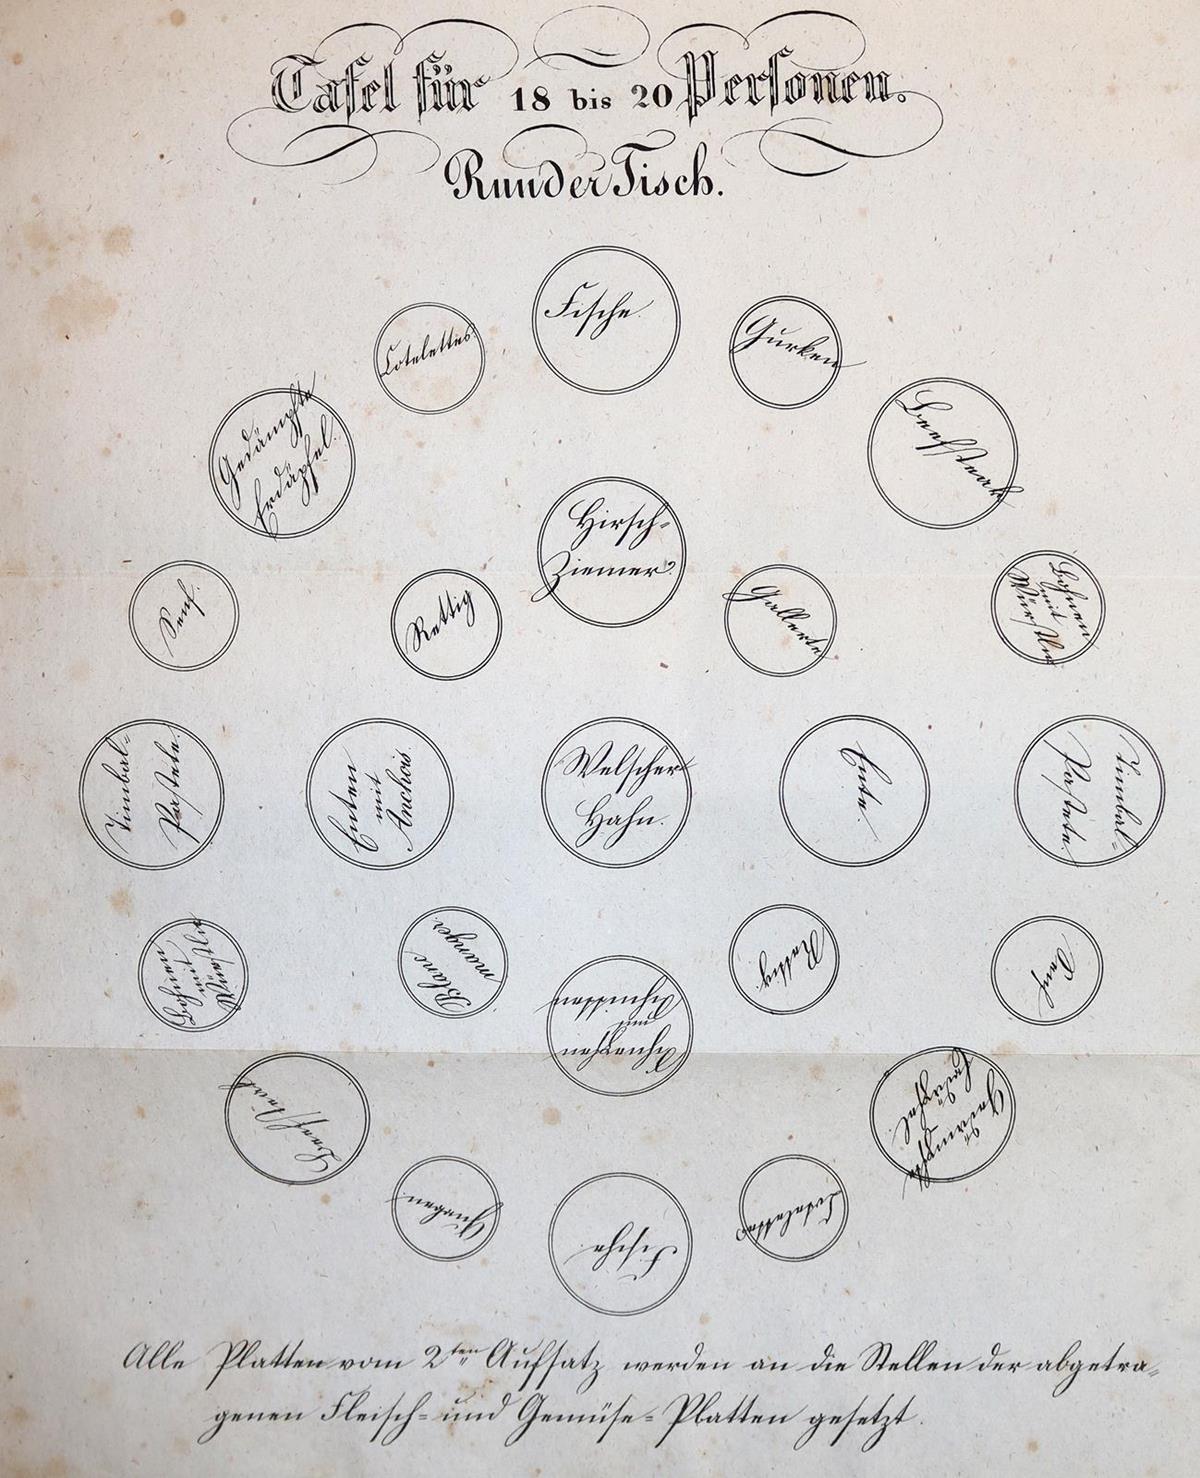 Tafel für 18 bis 20 Personen.
Runder Tisch.
Fische.
Cotelettes.
Gurken
Gedämpfte
Erdäpfel.
Beefsteak
Hirsch-
Ziemer.
Senf.
Rettig
Gallerte
Bohnen
mit
Würstln
Timbal-
Pastete.
Enten
mit
Anchois.
Welscher
Hahn.
Ente.
Timbal-
Pastete.
Bohnen
mit
Würstln
Blanc
manger.
Rettig.
Senf.
Schunken
und
Schnitten
Beefsteak
Gedämpfte
Erdäpfel.
Gurken
Fische
Cotelettes
Alle Platten vom 2ten Aufsatz werden an die Stellen der abgetra-
genen Fleisch- und Gemüse-Platten gesetzt.